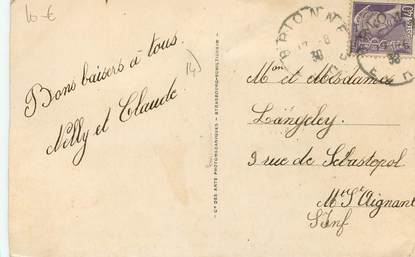 10 €
Bons baisers à tous.
Nelly et Claude
BRIONNE
17 -8
38
EURE
Mr et Mesdames
Langeley
9 rue de Sebastopol
Mt St Aignant
S. Inf
Cie DES ARTS PHOTOMÉCANIQUES - STRASBOURG-SCHILTIGHEIM